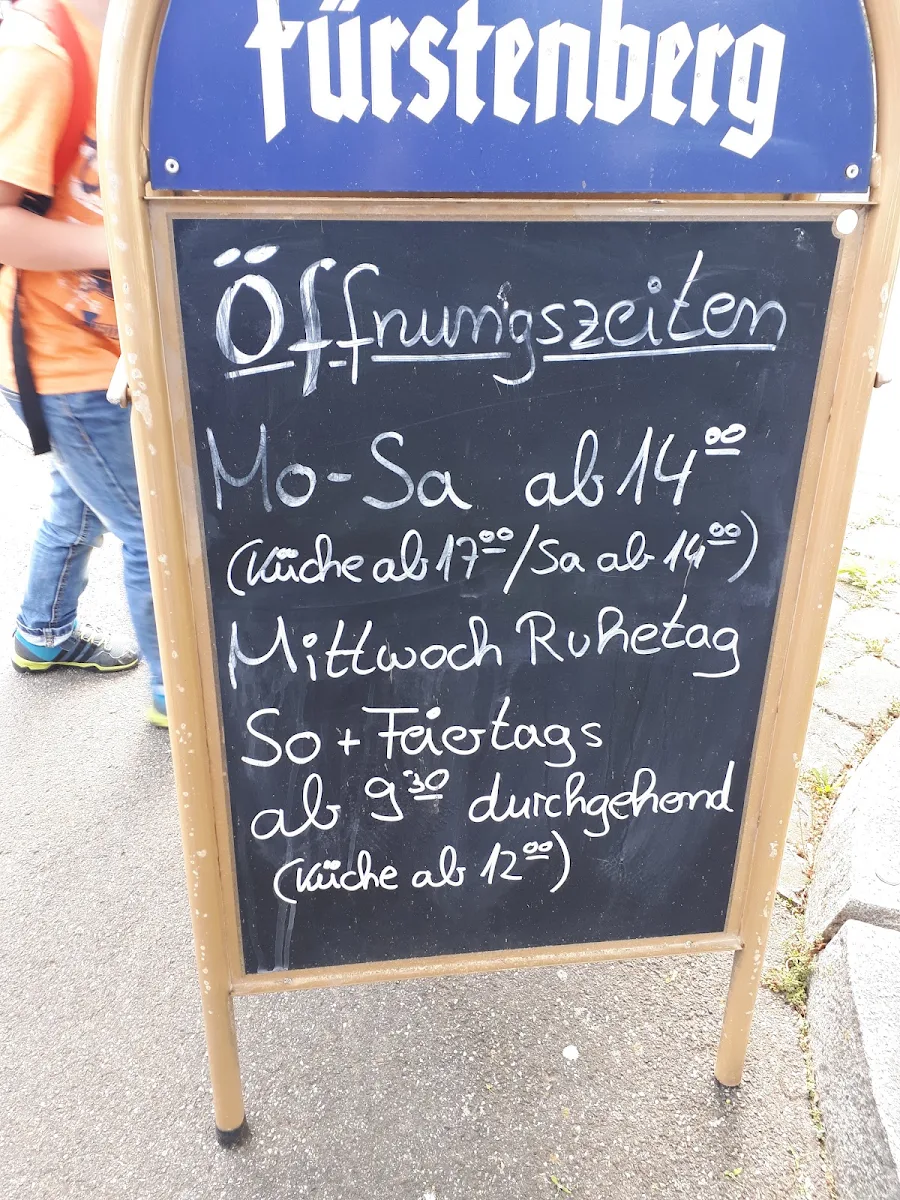 fürstenberg
Öffnungszeiten
Mo-Sa ab 14⁰⁰
(Küche ab 17⁰⁰/Sa ab 14⁰⁰)
Mittwoch Ruhetag
So + Feiertags
ab 9³⁰ durchgehend
(Küche ab 12⁰⁰)